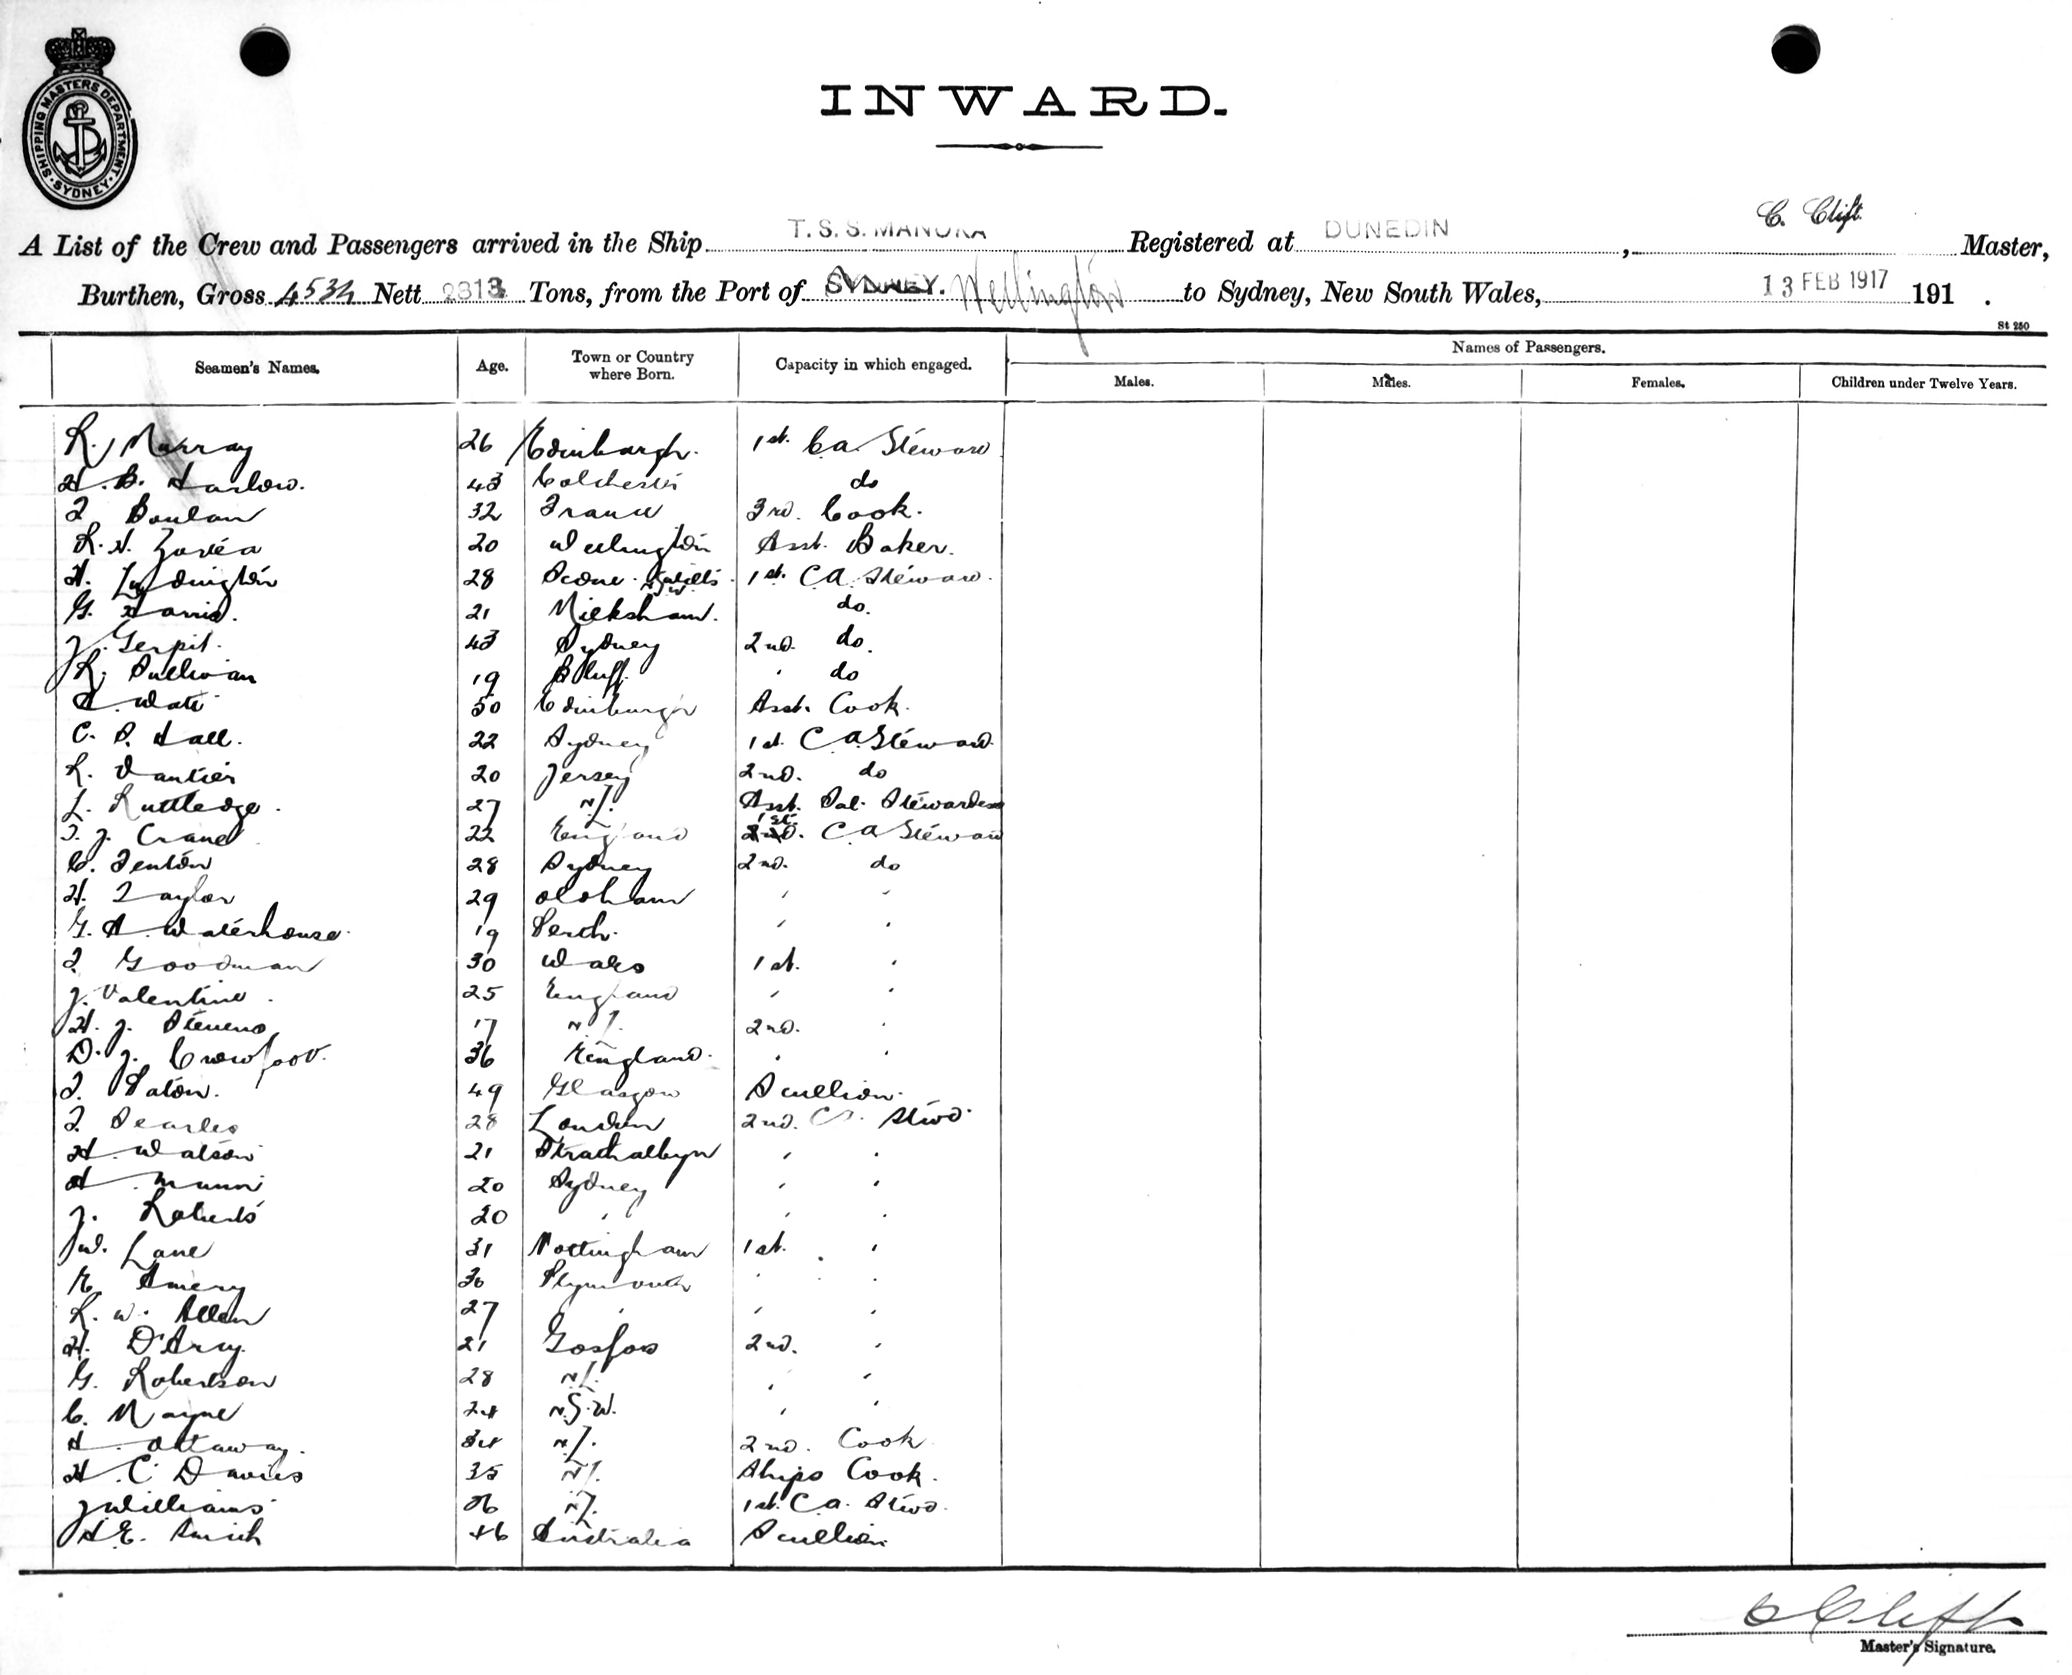 SHIPPING MASTERS DEPARTMENT · SYDNEY ·
INWARD.
A List of the Crew and Passengers arrived in the Ship T.S.S. MANUKA Registered at DUNEDIN, C. Clift Master,
Burthen, Gross 4534 Nett 2313 Tons, from the Port of SYDNEY. Wellington to Sydney, New South Wales, 13 FEB 1917 191 .
St 250
Seamen's Names. Age. Town or Country where Born. Capacity in which engaged. Names of Passengers.
Males. Males. Females. Children under Twelve Years.
R. Murray 26 Edinburgh. 1st. Ca Steward
H. B. Harlow. 43 Colchester do
F Boulan 32 France 3rd. Cook.
R. H. 20 Wellington Asst. Baker.
H. Luddington 28 Scone N.S.W. 1st. C A Steward.
G. Harris. 21 Mielksham. do.
J. Gerpit. 43 Sydney 2nd. do.
R. Sullivan 19 Bluff. " do
A. Watt 50 Edinburgh Asst. Cook.
C. S. Hall. 22 Sydney 1st. C A Steward.
R. Vautier 20 Jersey 2nd. do
L. Ruttledge. 27 N.Z. Asst. Sal. Stewardess
T. J. Crane 22 England 1st. 2nd. C A Steward
C. Fenton 28 Sydney 2nd. do
H. Taylor 29 Oldham " "
G. A. Waterhouse. 19 Perth. " "
F. Goodman 30 Wales 1st. "
J. Valentine. 25 England " "
H. J. Stevens 17 N.Z. 2nd. "
D. J. Crowfoot. 36 England. " "
T. Paton. 49 Glasgow Scullion.
F. Searles 28 London 2nd. C A. Stwd.
H. Watson 21 Strathalbyn " "
A. Munn 20 Sydney " "
J. Roberts 20 " " "
W. Lane 31 Nottingham 1st. "
E. Amery 30 Plymouth " "
R. W. Allen 27 " " "
H. D'Arcy. 21 Gosford 2nd. "
G. Robertson 28 N.Z. " "
C. Mayne 24 N.S.W. " "
A. Ottaway. 34 N.Z. 2nd. Cook
H. C. Davies 35 N.Z. Ships Cook.
J Williams 36 N.Z. 1st. C A. Stwd.
A. E. Smith 46 Australia Scullion
C Clift
Master's Signature.